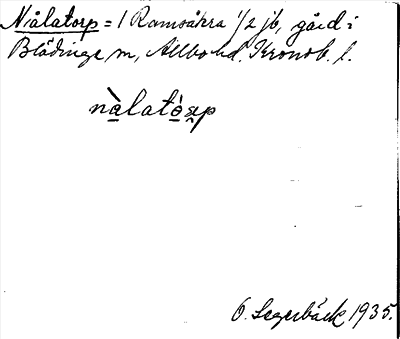 Nålatorp = 1 Ramsåkra 1/2 jb, gård i
Blädinge sn, Allbo hd. Kronob. l.
nàlatò̱rp
O. Segerbäck 1935.